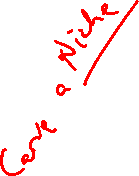 Carve a Niche